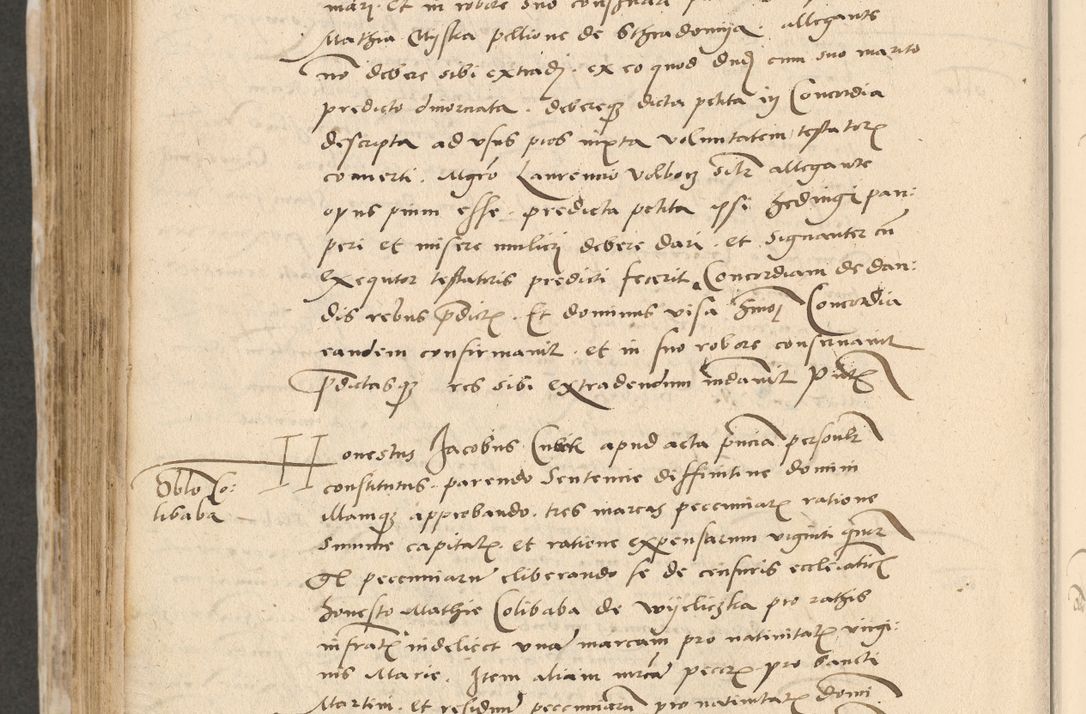 mari. Et in robore suo conservari
Mathia Myska pellione de Sthradomija. allegante
nō debere sibi extradj. ex eo quod dudj cum suo marito
predicto divorciata. debereqȝ dicta petita in Concordia
descripta ad usus pios iuxta voluntatem testatorȝ
converti. Mgrō Laurencio similr allegante
opus pium esse. predicta petita ipsi Hedvigi pau:
peri et misere mulieri debere dari. et signanter cū
exequtor testatoris predicti fecerit Concordiam de dan:
dis rebus pdictȝ. Et dominus visa hmōj Concordia
eandem confirmavit. et in suo robore conservavit
pdictasqȝ res sibi extradendum mdavit pntȝ
Honestus Jacobus Cubek apud acta pncia personlr
constitutus. parendo sentencie diffinitive domini
illamqȝ approbando. tres marcas pecuniarȝ ratione
summe capitalȝ. et ratione expensarum viginti qtuor
gl pecuniarū eliberando se de censuris ecclesiasticȝ
honesto Mathie Colibaba de Wyeliczka pro rathis
infratȝ videlicet unā marcam pro nativitatȝ virgi:
nis Marie. Item aliam mrcā peccrȝ pro sancti
Martini. et residuū pecuniarū pro nativitatȝ domi
Oblo Co:
libaba